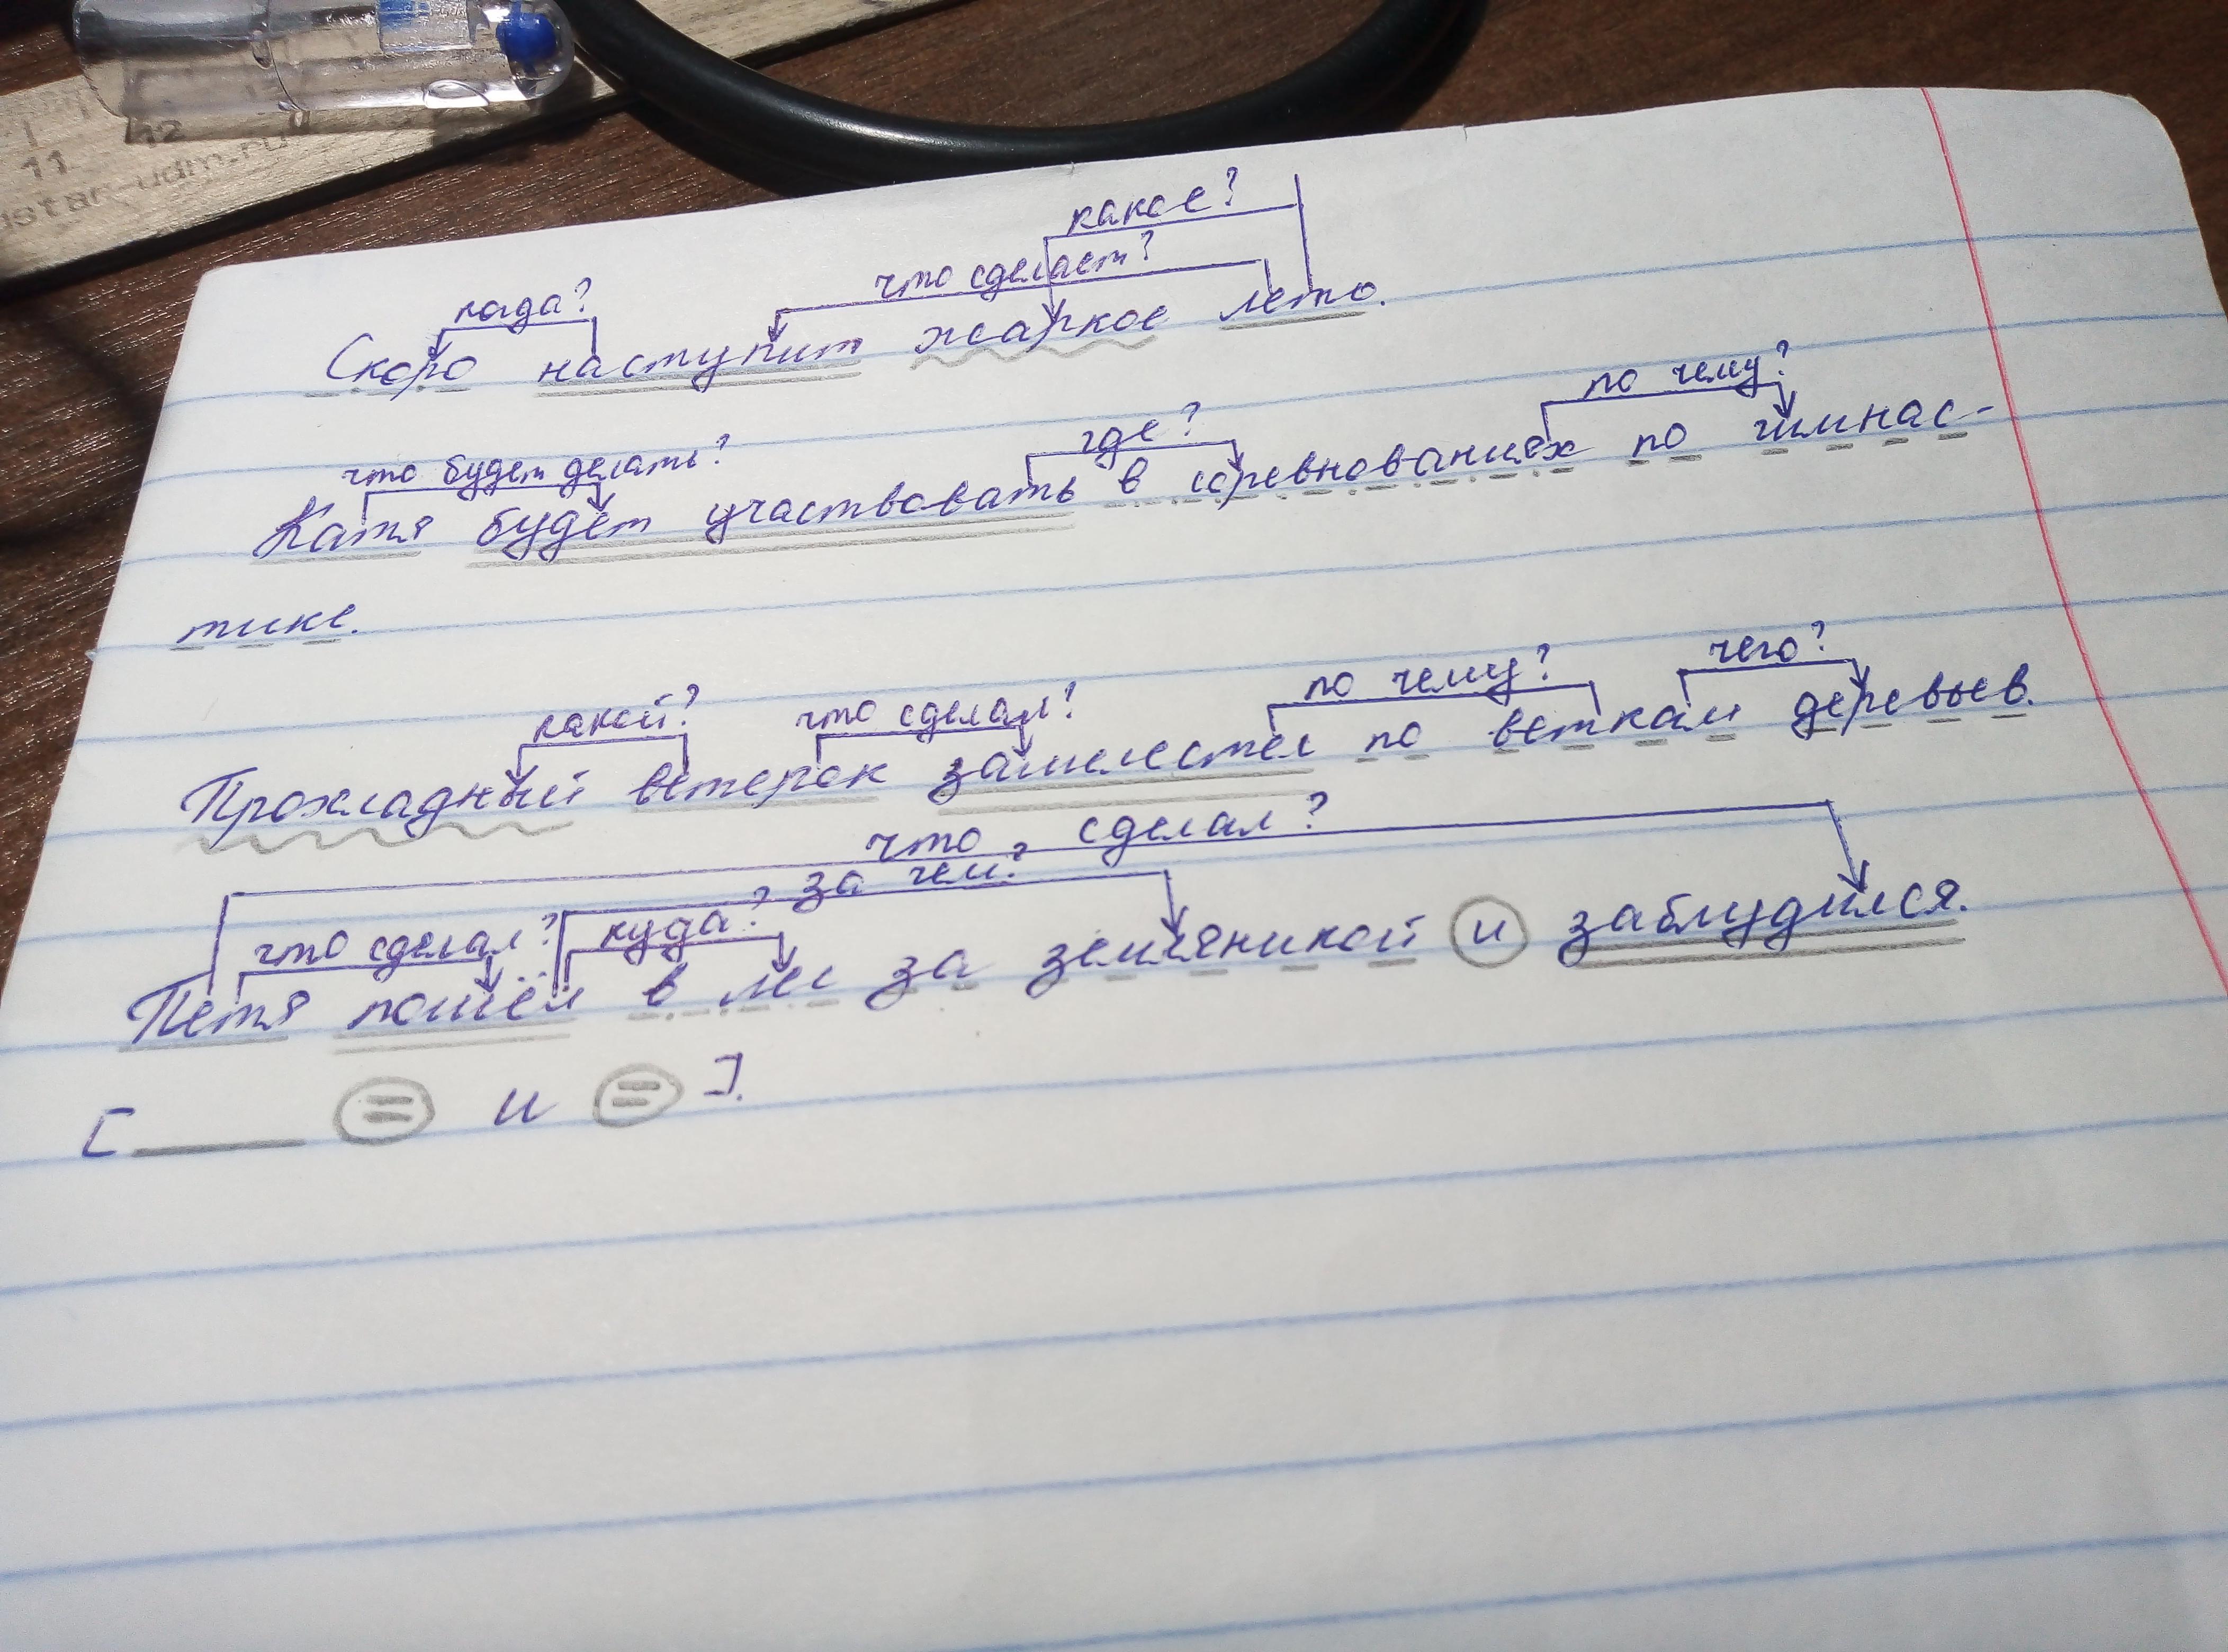 11 12
star-udm.ru
какое?
когда? что сделает?
Скоро наступит жаркое лето.
по чему?
что будет делать? где?
Катя будет участвовать в соревнованиях по гимнас-
тике.
какой? что сделал? по чему? чего?
Прохладный ветерок зашелестел по веткам деревьев.
что сделал?
за чем?
что сделал? куда?
Петя пошёл в лес за земляникой и заблудился.
[ = и = ].